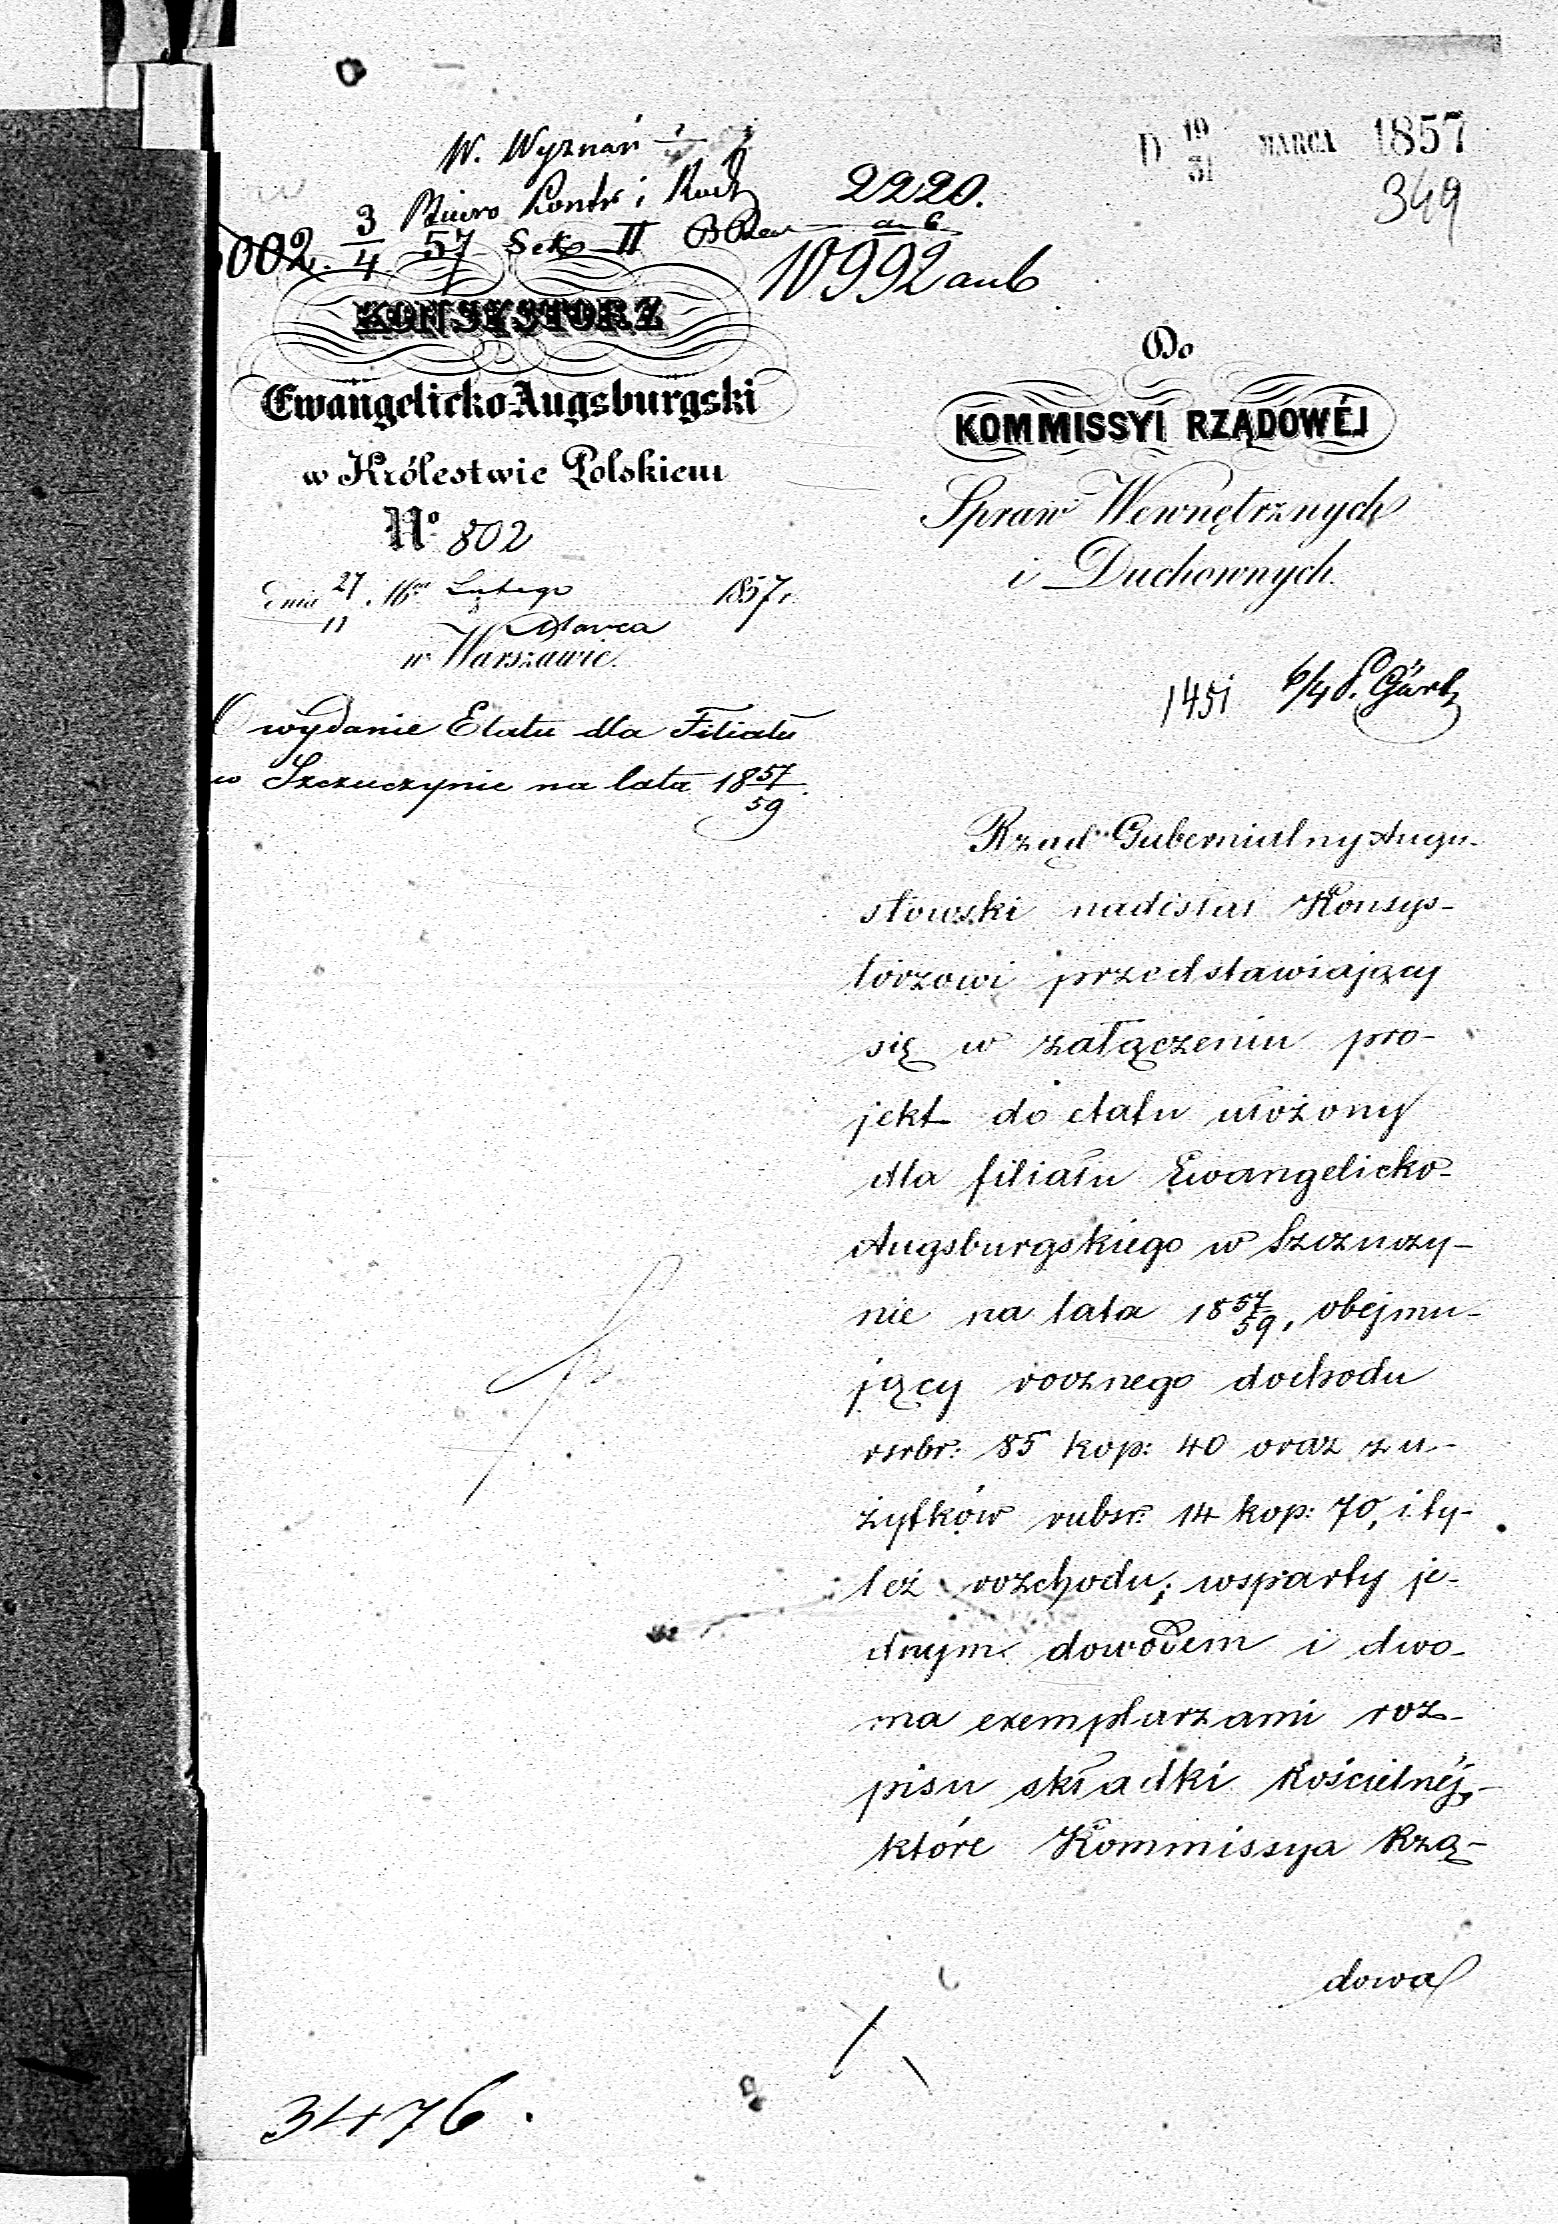 W. Wyznań
D 19/31 MARCA 1857
349
Biuro Kontr i Rach
2220.
a b
002. 3/4 57 Sek II
10992 aub
KONSYSTORZ
Ewangelicko-Augsburgski
w Królestwie Polskiem
No 802
dnia 27/11 Mca Lutego/Marca 1857 r.
w Warszawie.
O wydanie Etatu dla Filiału
w Szczuczynie na lata 18 57/59.
Do
KOMMISSYI RZĄDOWÉJ
Spraw Wewnętrznych
i Duchownych.
1451 6/4 P. Gürtz
Rząd Gubernialny Augu-
stowski nadesłał Konsys-
torzowi przedstawiający
się w załączeniu pro-
jekt do etatu ułożony
dla filiału Ewangelicko-
Augsburgskiego w Szczuczy-
nie na lata 18 57/59, obejmu-
jący rocznego dochodu
rsrbr: 85 kop: 40 oraz z u-
żytków rubsr: 14 kop: 70, i ty-
leż rozchodu; wsparty je-
dnym dowodem i dwo-
ma exemplarzami roz-
pisu składki kościelnéj,
które Kommissya Rzą-
dowa
3476.